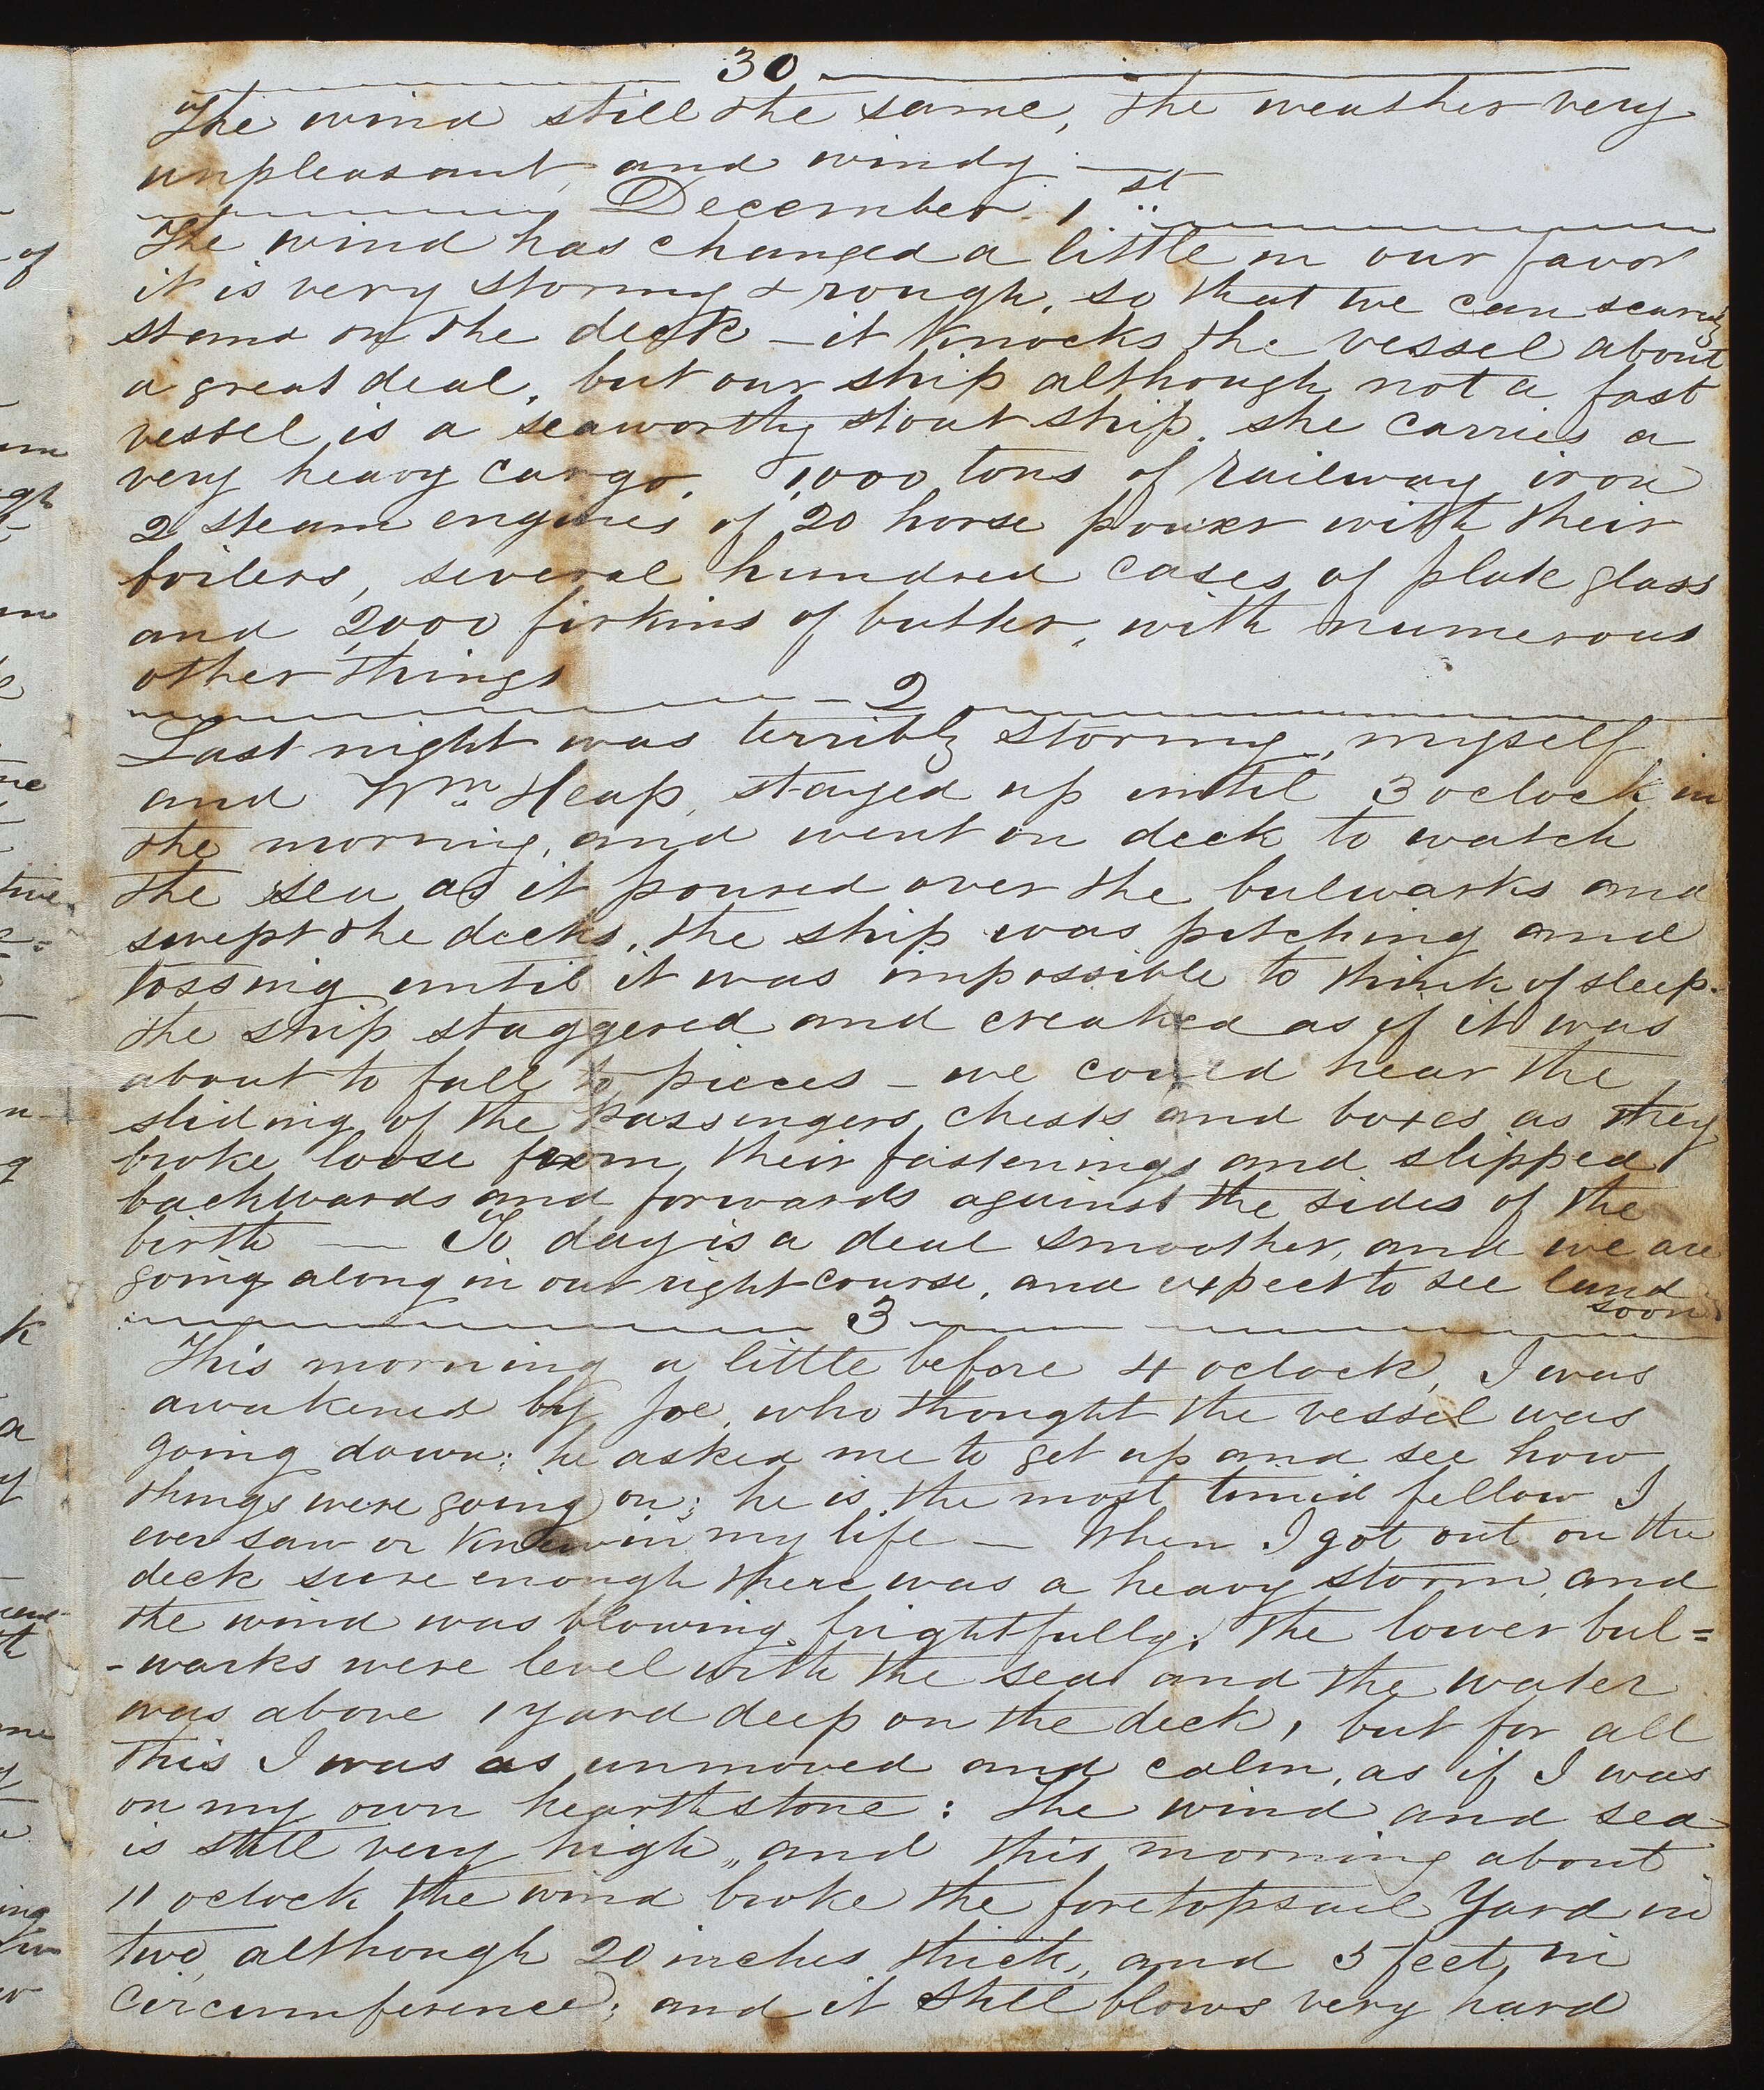 30
The wind still the same, the weather very
unpleasant, and windy —
December 1st
The wind has changed a little in our favor
it is very stormy & rough, so that we can scarcely
stand on the deck — it knocks the vessel about
a great deal, but our ship although not a fast
vessel is a seaworthy stout ship. she carries a
very heavy cargo. 1,000 tons of railway iron
2 steam engines of 20 horse power with their
boilers, several hundred cases of plate glass
and 2,000 firkins of butter, with numerous
other things
2
Last night was terribly stormy, myself
and Wm. Heap, stayed up until 3 oclock in
the morning, and went on deck to watch
the sea as it poured over the bulwarks and
swept the decks, the ship was pitching and
tossing until it was impossible to think of sleep.
the ship staggered and creaked as if it was
about to fall to pieces — we could hear the
sliding of the passengers chests and boxes as they
broke loose from their fastenings and slipped
backwards and forwards against the sides of the
birth — To day is a deal smoother, and we are
going along in our right course, and expect to see land
soon
3
This morning a little before 4 oclock, I was
awakened by Joe, who thought the vessel was
going down; he asked me to get up and see how
things were going on; he is the most timid fellow I
ever saw or knew in my life — When I got out on the
deck sure enough there was a heavy storm, and
the wind was blowing frightfully; the lower bul=
-warks were level with the sea and the water
was above 1 yard deep on the deck, but for all
this I was as unmoved and calm, as if I was
on my own hearthstone: the wind and sea
is still very high,, and this morning about
11 oclock the wind broke the foretopsail Yard in
two, although 20 inches thick, and 5 feet in
circumference; and it still blows very hard